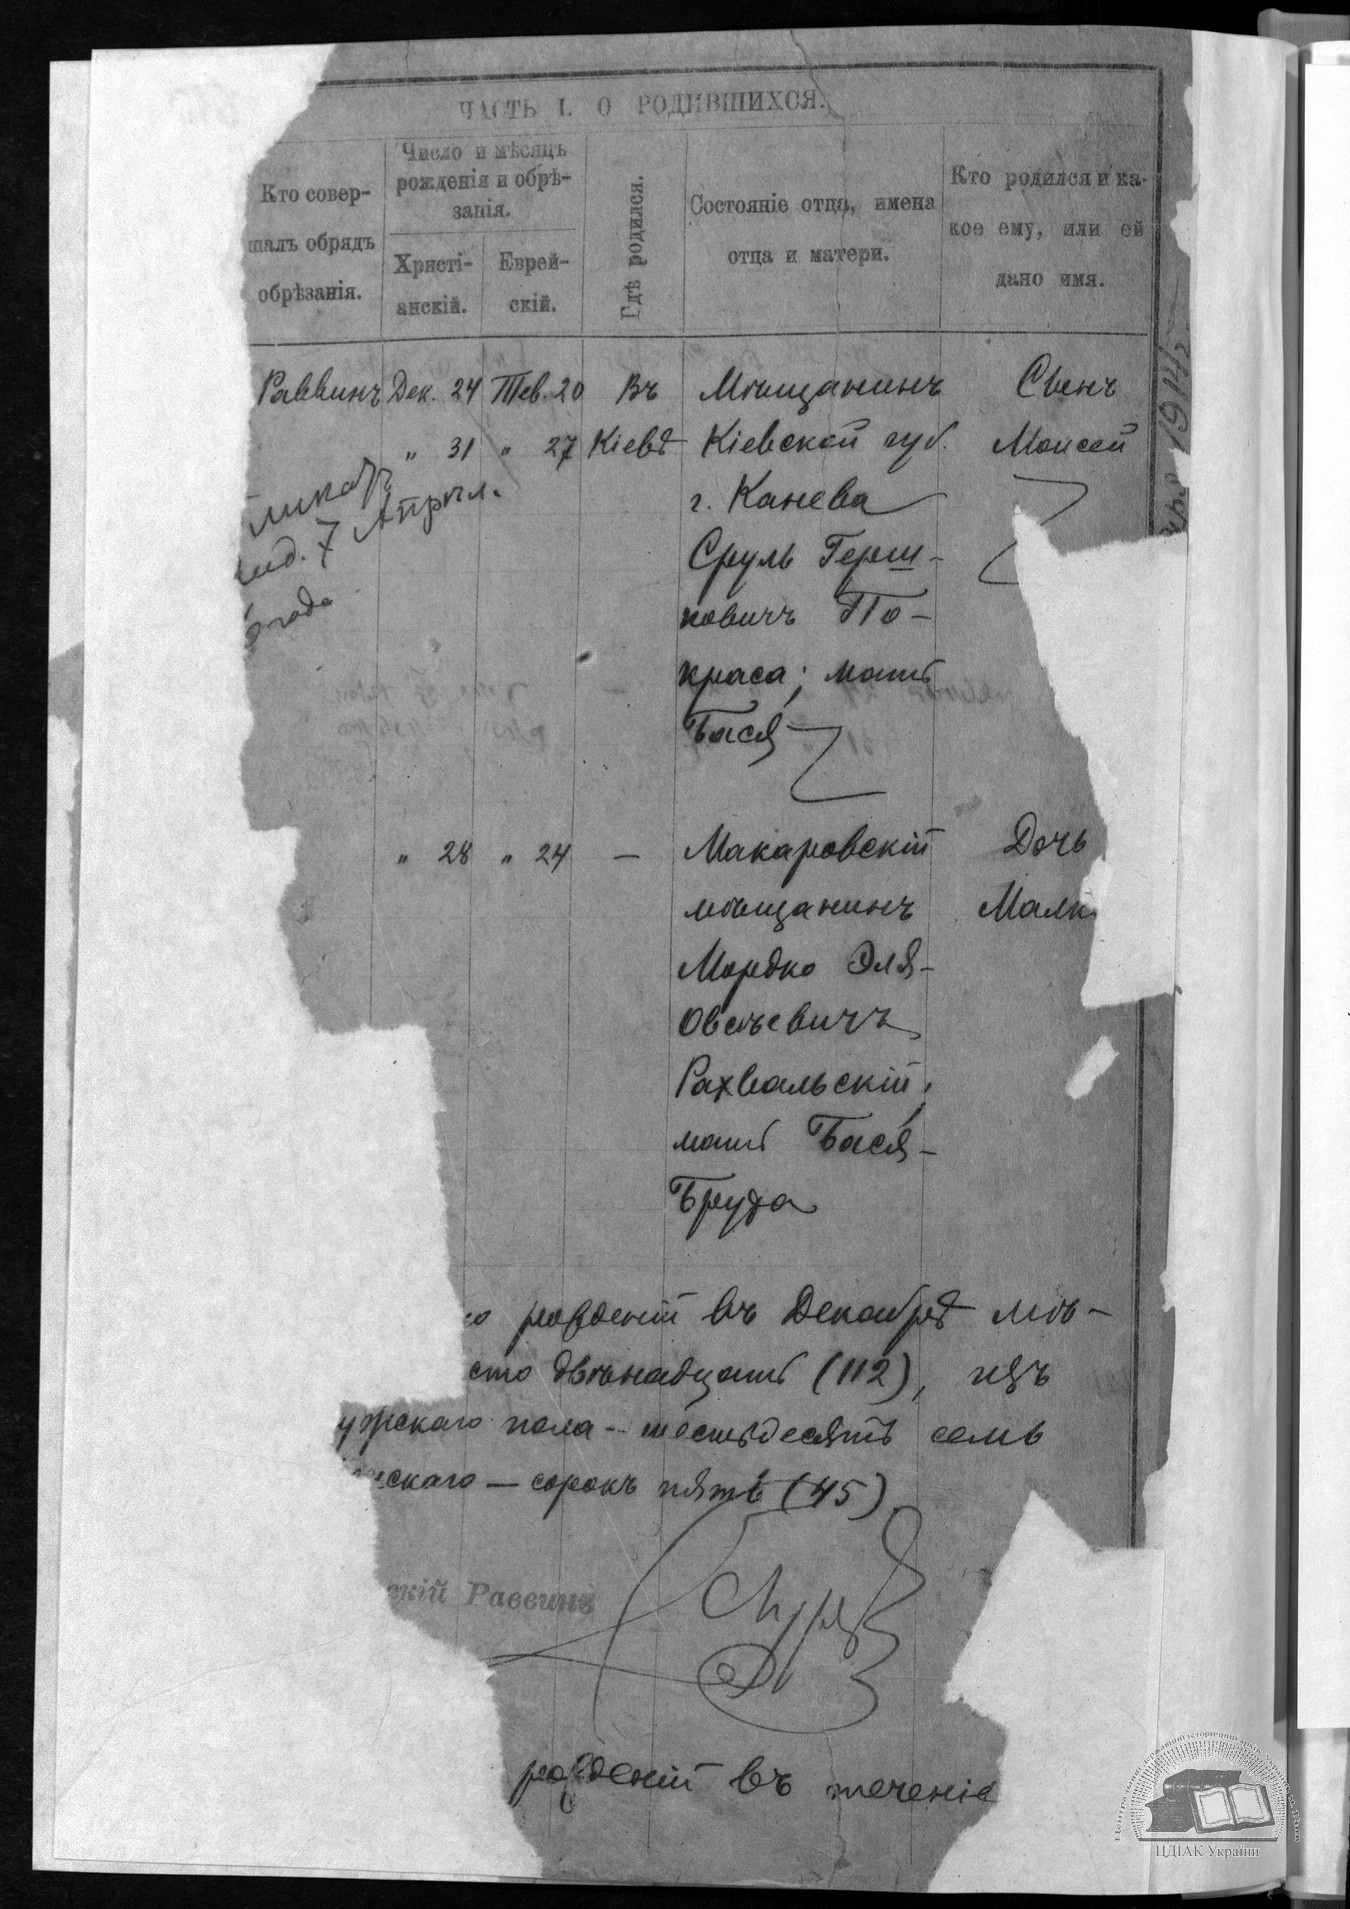 ЧАСТЬ I. О РОДИВШИХСЯ.
Кто совер-
шалъ обрядъ
обрѣзанія.
Число и мѣсяцъ
рожденія и обрѣ-
занія.
Христі-
анскій.
Еврей-
скій.
Гдѣ родился.
Состояніе отца, имена
отца и матери.
Кто родился и ка-
кое ему, или ей
дано имя.
Раввинъ Дек. 24 Тев. 20 Въ Мѣщанинъ Сынъ
„ 31 „ 27 Кіевѣ Кіевской губ. Моисей
г. Канева
7 Апрѣл.
года
Сруль Герш-
ковичъ По-
краса; мать
Бася
„ 28 „ 24 — Макаровскій Дочь
мѣщанинъ Малк
Мордко Эля-
Овсѣевичъ
Рахвальскій;
мать Бася-
Бруха
о рожденій въ Декабрѣ мѣ-
сто двѣнадцать (112), изъ
ужскаго пола -- шестьдесятъ семь
скаго — сорокъ пять (45)
скій Раввинъ
рожденій въ теченіе
ЦДІАК України